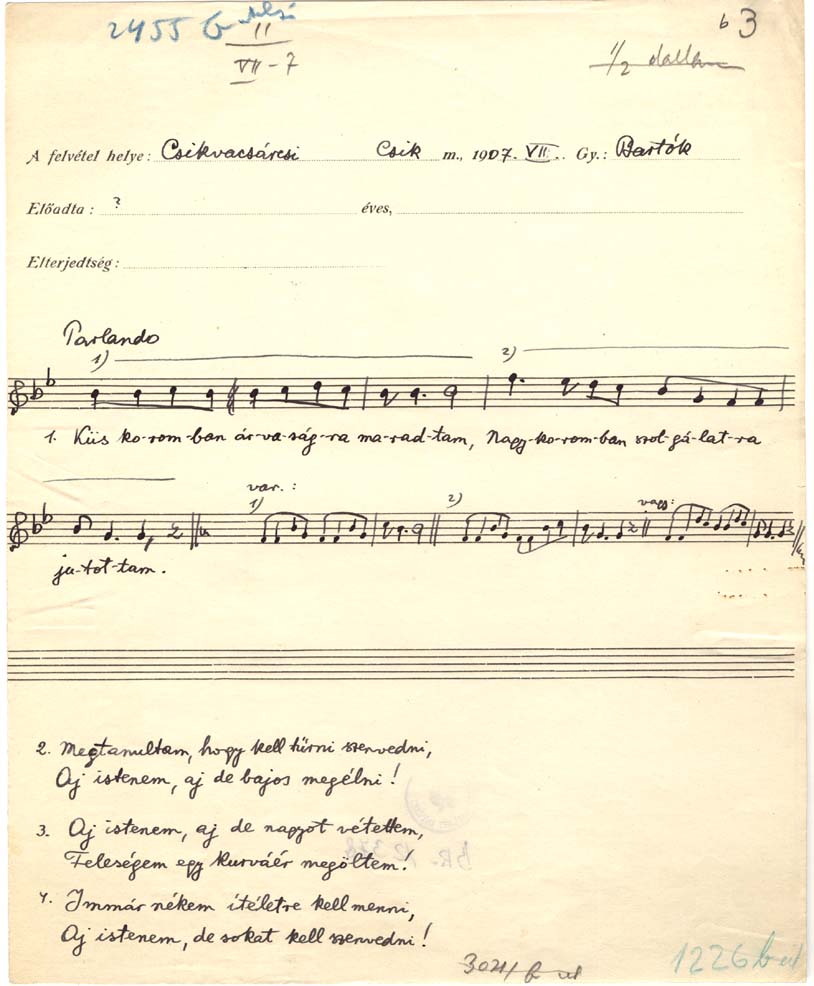 2455 b alsó
II
VII - 7
b 3
1/2 dallam
A felvétel helye: Csikvacsárcsi Csik m., 1907. VII. Gy.: Bartók
Előadta: ? éves,
Elterjedtség:
Parlando
1) 2)
1. Kiis ko-rom-ban ár-va-ság-ra ma-rad-tam, Nagy-ko-rom-ban szol-gá-lat-ra
var.:
1) 2) vagy:
ju-tot-tam.
2. Megtanultam, hogy kell türni szenvedni,
Aj istenem, aj de bajos megélni!
3. Aj istenem, aj de nagyot vétettem,
Feleségem egy kurváér megöltem!
4. Immár nékem ítéletre kell menni,
Aj istenem, de sokat kell szenvedni!
1226